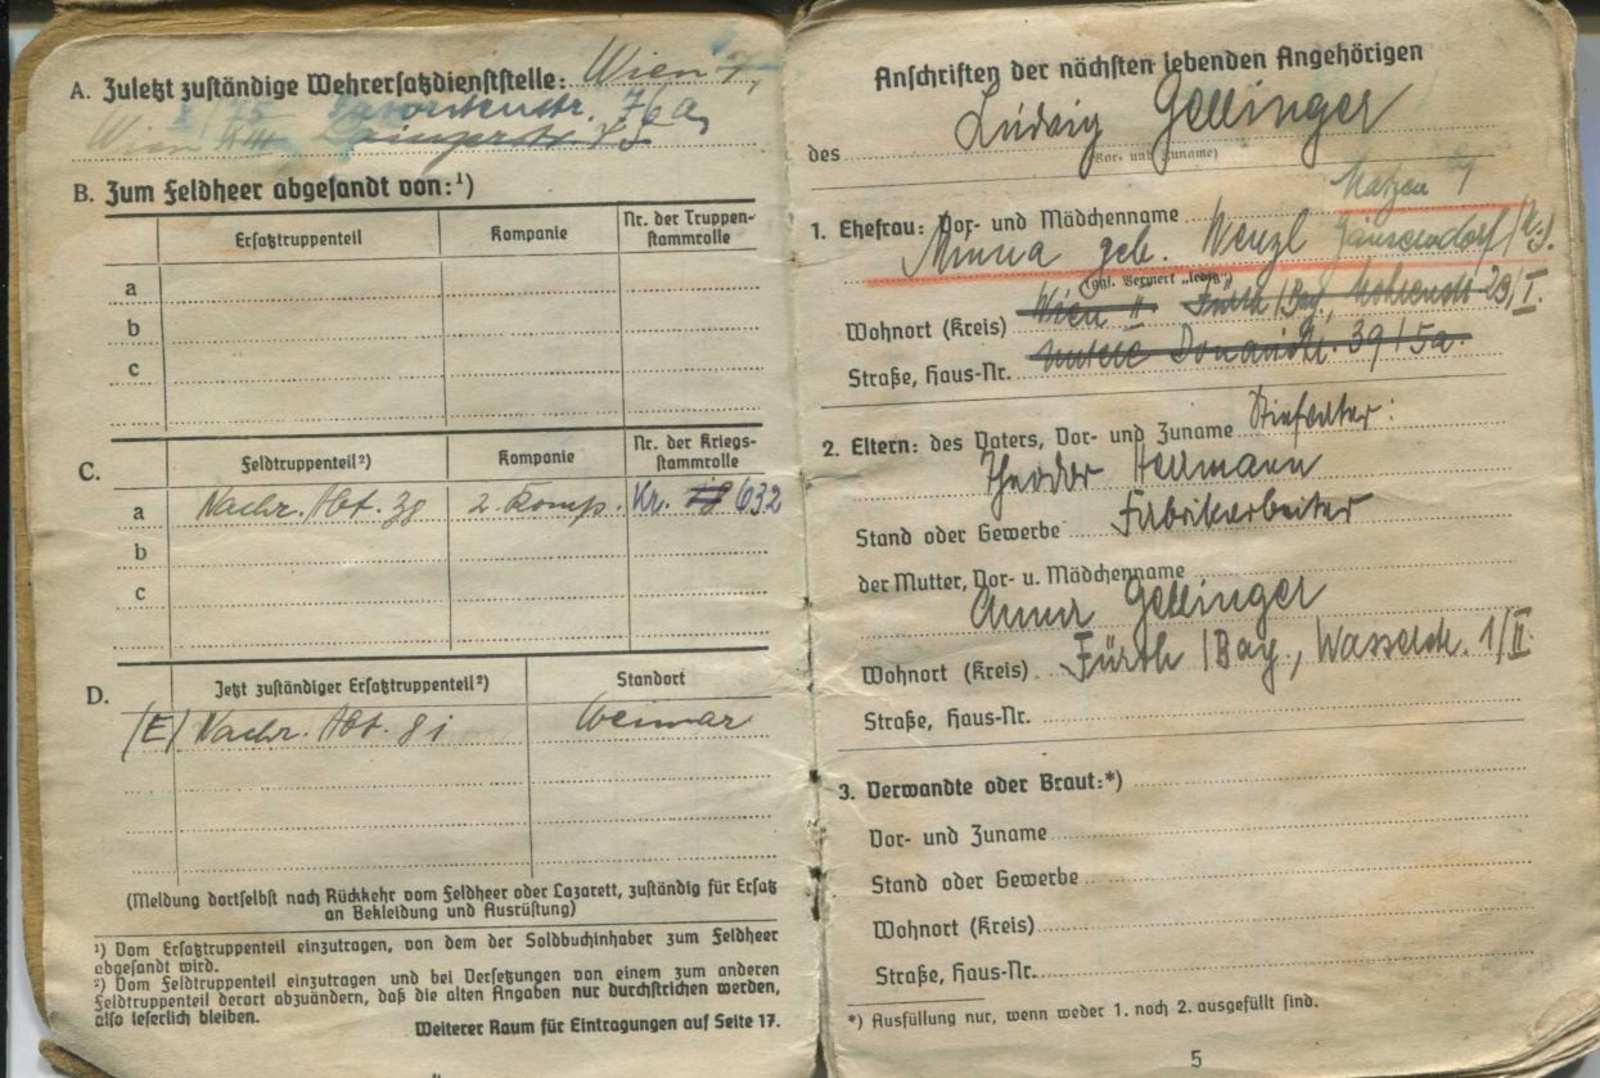 A. Zuletzt zuständige Wehrersatzdienststelle: Wien 7,
76a,
Wien XIII. Lainzerstr. 75
B. Zum Feldheer abgesandt von:¹)
Ersatztruppenteil Kompanie Nr. der Truppen-
stammrolle
a
b
c
C. Feldtruppenteil²) Kompanie Nr. der Kriegs-
stammrolle
a Nachr. Abt. 38 2. Komp. Kr. 18 632
b
c
D. Jetzt zuständiger Ersatztruppenteil²) Standort
(E) Nachr. Abt. 81 Weimar
(Meldung dortselbst nach Rückkehr vom Feldheer oder Lazarett, zuständig für Ersatz
an Bekleidung und Ausrüstung)
¹) Vom Ersatztruppenteil einzutragen, von dem der Soldbuchinhaber zum Feldheer
abgesandt wird.
²) Vom Feldtruppenteil einzutragen und bei Versetzungen von einem zum anderen
Feldtruppenteil derart abzuändern, daß die alten Angaben nur durchstrichen werden,
also leserlich bleiben.
Weiterer Raum für Eintragungen auf Seite 17.
Anschriften der nächsten lebenden Angehörigen
des Ludwig Gellinger
(Vor- und Zuname)
Matzen
1. Ehefrau: Vor- und Mädchenname
Minna geb. Wenzl Gänserndorf
(ggf. Vermerk „ledig“)
Wohnort (Kreis) Wien II Fürth /Bay., 29/I.
Straße, Haus-Nr. Untere Donaustr. 39/5a.
2. Eltern: des Vaters, Vor- und Zuname Stiefvater:
Theodor Hellmann
Stand oder Gewerbe Fabrikarbeiter
der Mutter, Vor- u. Mädchenname
Anna Gellinger
Wohnort (Kreis) Fürth /Bay., Wasserstr. 1/II.
Straße, Haus-Nr.
3. Verwandte oder Braut:*)
Vor- und Zuname
Stand oder Gewerbe
Wohnort (Kreis)
Straße, Haus-Nr.
*) Ausfüllung nur, wenn weder 1. noch 2. ausgefüllt sind.
5